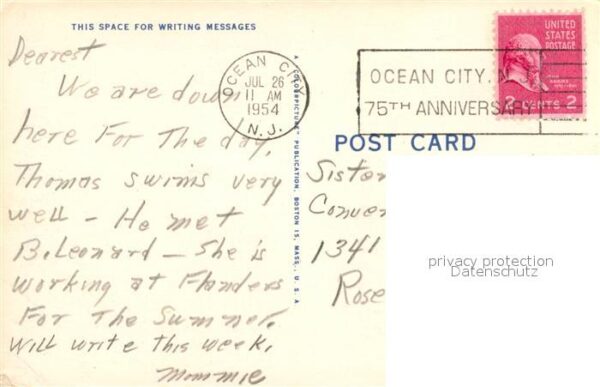 THIS SPACE FOR WRITING MESSAGES
Dearest
We are down
here For The day,
Thomas swims very
well - He met
B. Leonard - She is
working at Flanders
For The Summer.
Will write this week,
Mommie
A "COLORPICTURE" PUBLICATION, BOSTON 15, MASS., U.S.A.
OCEAN CITY
JUL 26
11 AM
1954
N.J.
OCEAN CITY, N.J.
75TH ANNIVERSARY
UNITED
STATES
POSTAGE
2 CENTS 2
POST CARD
Sister
Conve
1341
Rose
privacy protection
Datenschutz